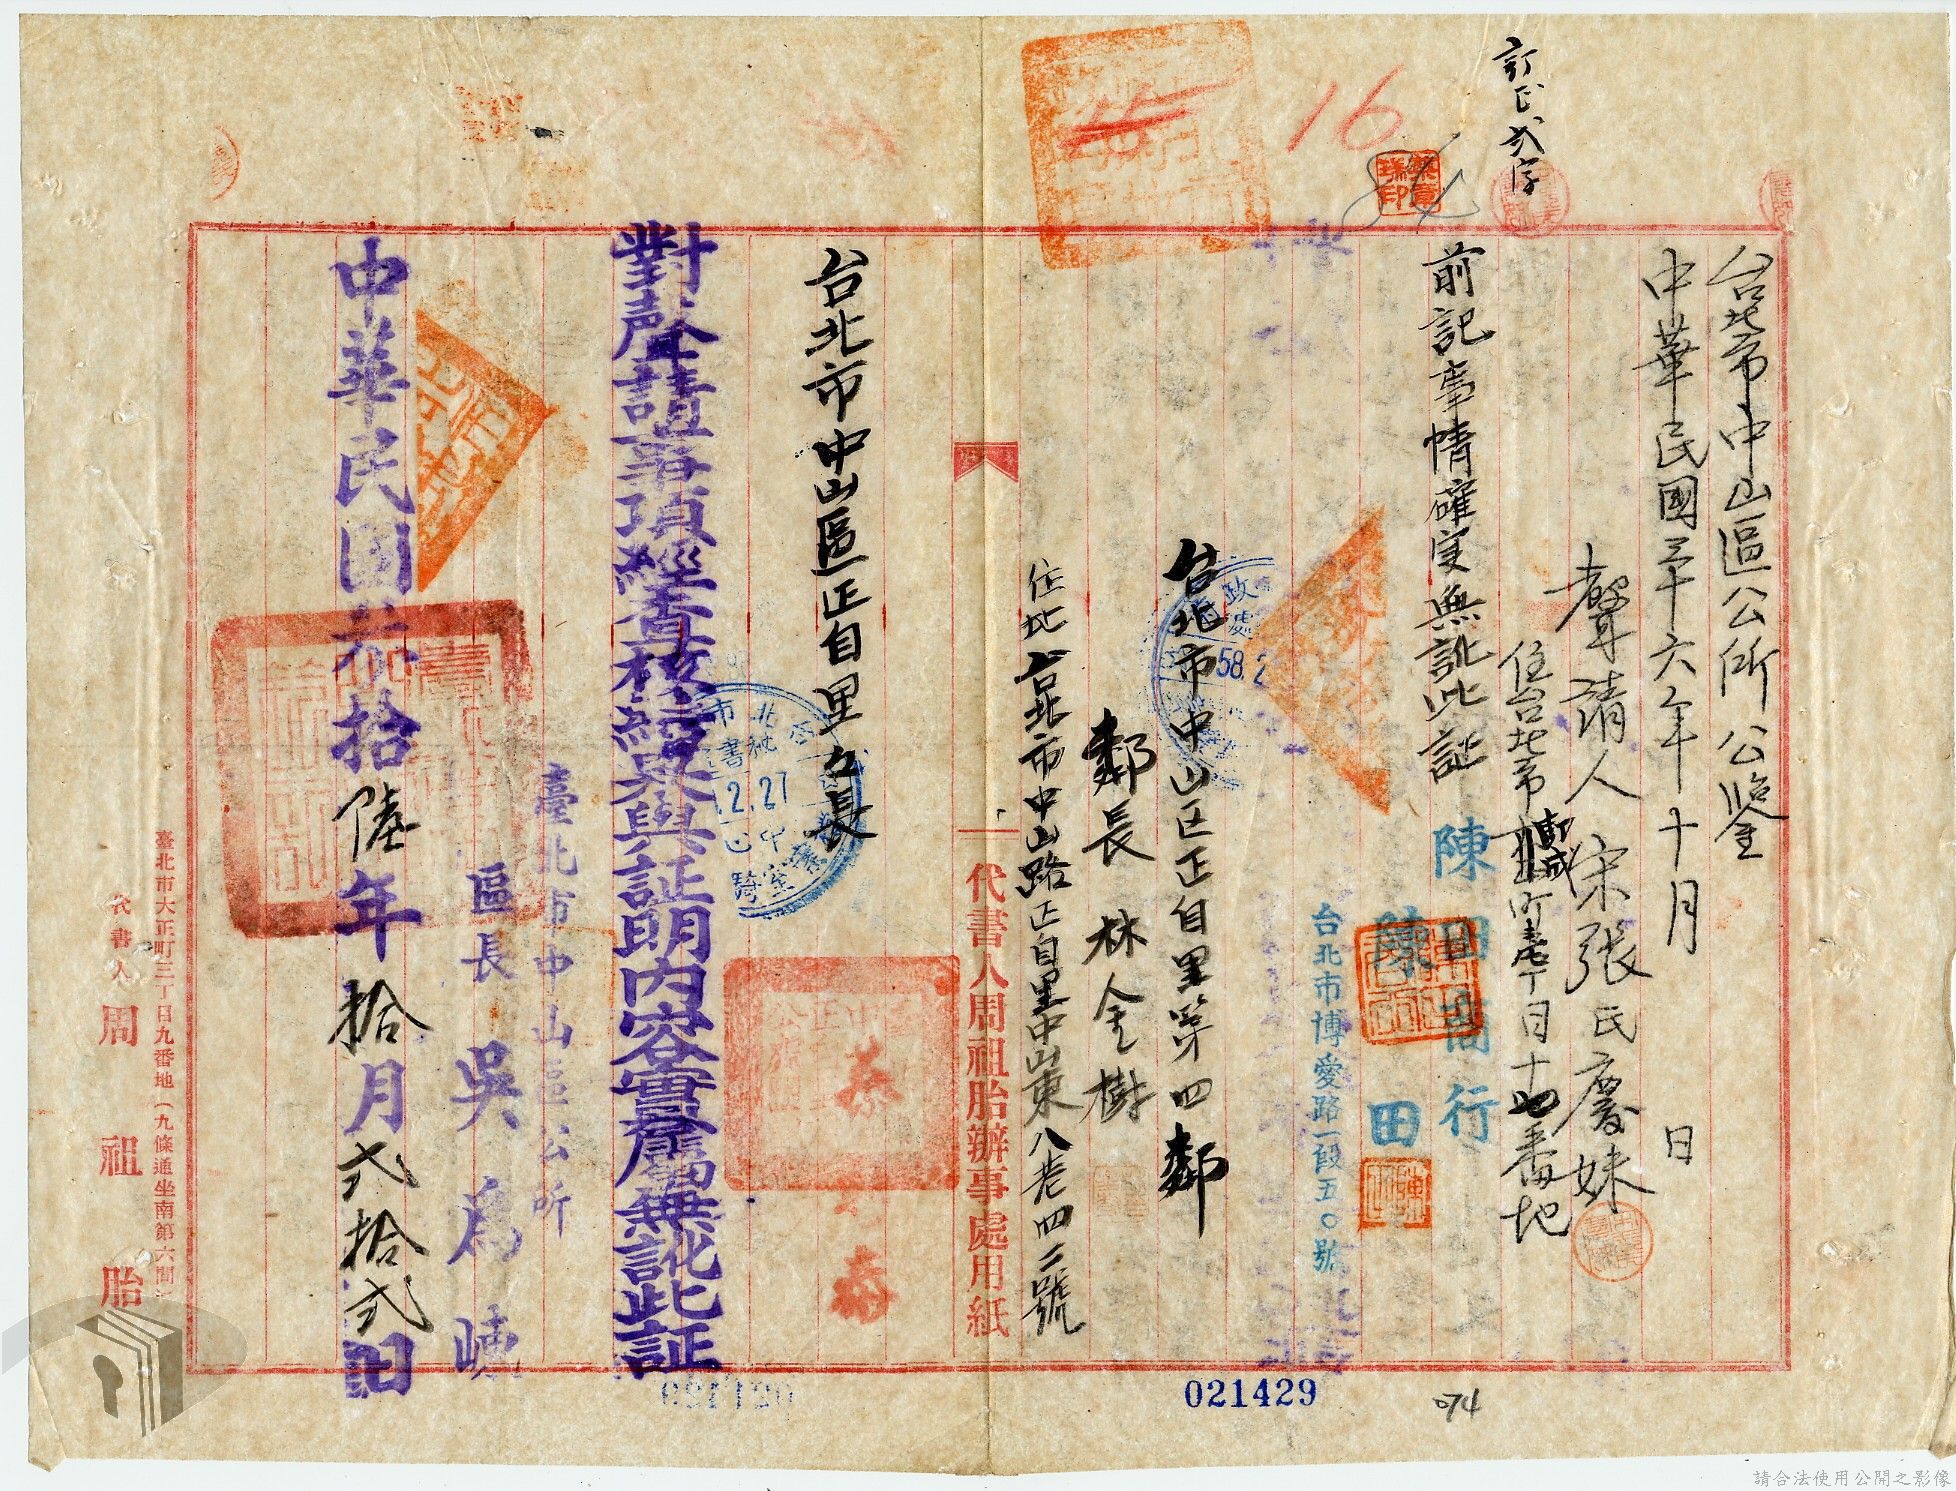 訂正弍字
16
台北市中山區公所公鑒
中華民國三十六年十月 日
聲請人 宋張氏慶妹
住台北市 御成町壹丁目十四番地
前記事情確实無訛此証
陳田商行
陳 田
台北市博愛路一段五〇號
台北市中山区正自里第四鄰
鄰長 林金樹
住北台北市中山路正自里中山東八巷四二號
代書人周祖胎辦事處用紙
台北市中山區正自里々長
對聲請事項經查核結果與証明內容實屬無訛此証
臺北市中山區公所
區長 吳為
中華民國叁拾陸年拾月弍拾弍日
臺北市大正町三丁目九番地(九條通坐南第六間
代書人 周祖胎
58.2
2.27
021429
074
請合法使用公開之影像